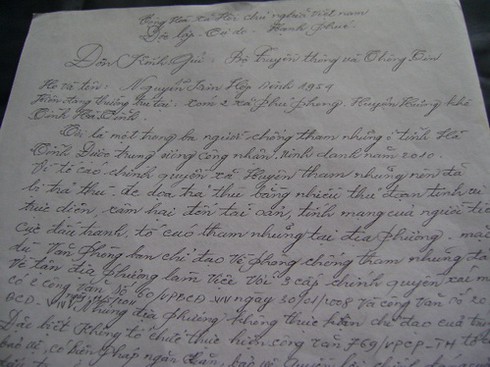 Cộng Hòa xã Hội chủ nghĩa Việt nam
Độc lập - Tự do - Hạnh Phúc
Đơn Kính Gửi: Bộ Truyền thông và Thông Tin
Họ và tên: Nguyễn Sinh 1954
Hiện đang thường trú tại: xóm 2 xã Phú Phong. Huyện Hương Khê
Tỉnh Hà Tĩnh.
Tôi là một trong ba người chống tham nhũng ở tỉnh Hà
Tĩnh Được trung ương công nhận. vinh danh năm 2010.
Vì tố cáo chính quyền xã Huyện tham nhũng nên đã
bị trả thù - đe dọa trả thù bằng nhiều thủ đoạn tinh vi
trực diện, xâm hại đến tài sản, tính mạng của người tích
cực đấu tranh, tố cáo tham nhũng tại địa phương. mặc
dù Văn Phòng ban chỉ đạo về phòng chống tham nhũng đã
về tận địa phương làm việc với 3 cấp chính quyền
có công văn Số 60/VPCĐ ngày 20/01/2008 Và công văn Số 20
BCĐ địa phương không thực hiện chỉ đạo của
Đặc biệt không tổ chức thực hiện công văn 769/VPCP_TH
bảo vệ, có biện pháp ngăn chặn, bảo vệ quyền lợi chính đáng